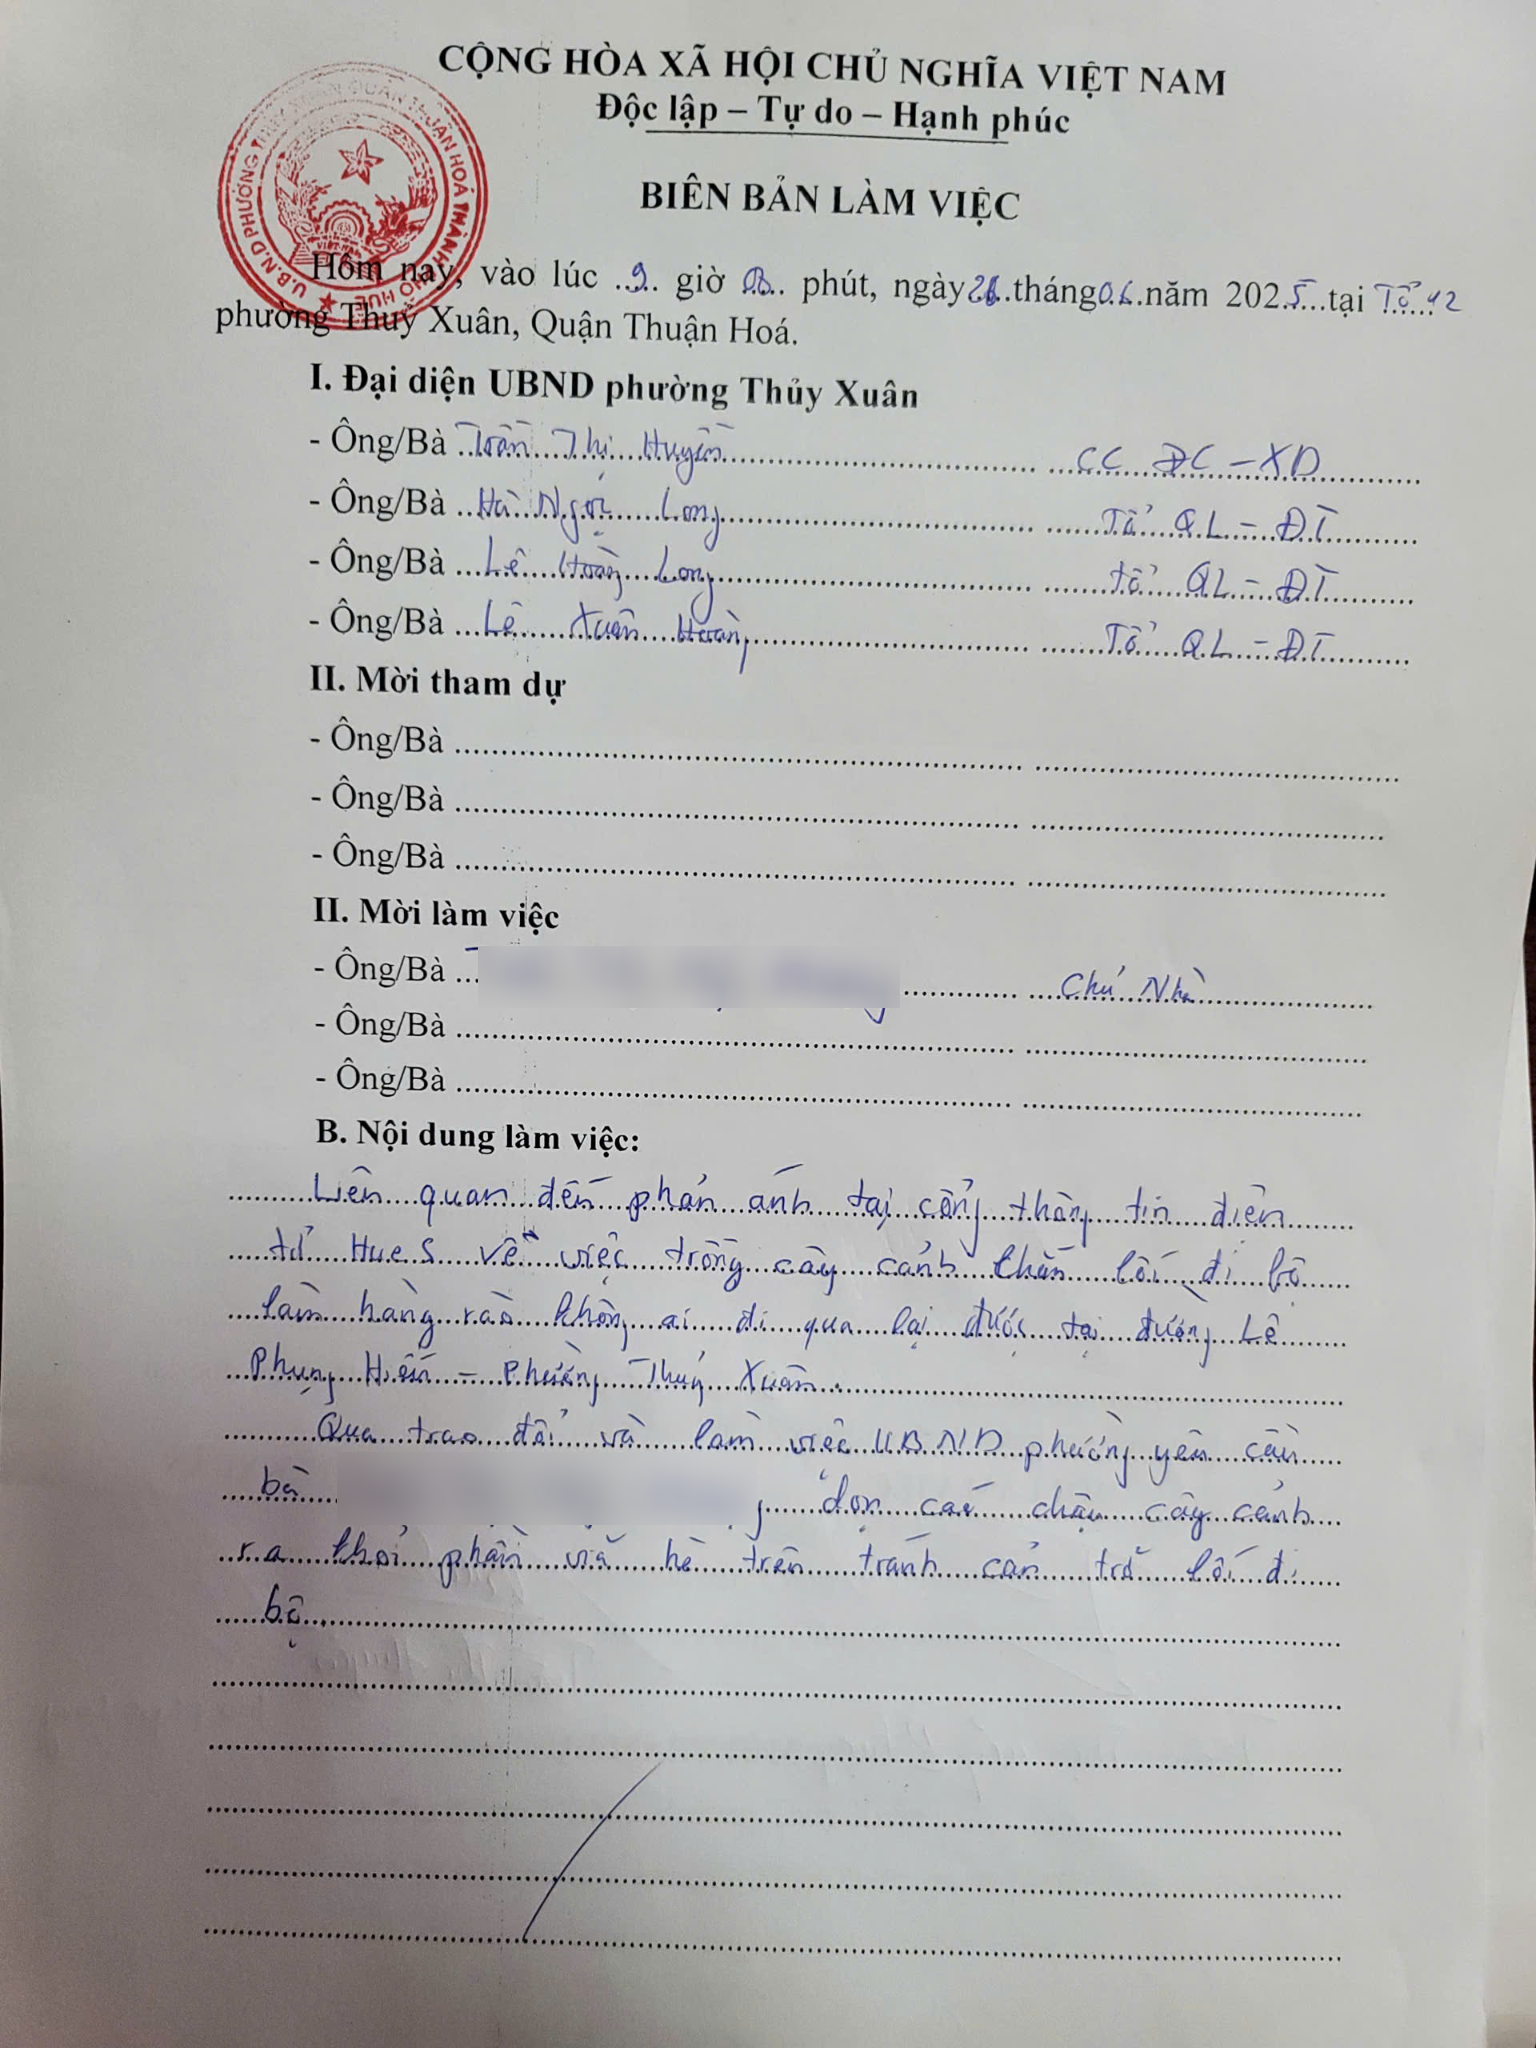 CỘNG HÒA XÃ HỘI CHỦ NGHĨA VIỆT NAM
Độc lập – Tự do – Hạnh phúc
BIÊN BẢN LÀM VIỆC
U.B.N.D PHƯỜNG THUỶ XUÂN QUẬN THUẬN HOÁ THÀNH PHỐ HUẾ
VIỆT NAM
Hôm nay, vào lúc 9 giờ phút, ngày tháng 06 năm 2025 tại Tổ 12
phường Thuỷ Xuân, Quận Thuận Hoá.
I. Đại diện UBND phường Thủy Xuân
- Ông/Bà Trần Thị Huyền CC ĐC – XD
- Ông/Bà Hà Ngọc Long Tổ QL – ĐT
- Ông/Bà Lê Hoàng Long tổ QL – ĐT
- Ông/Bà Lê Xuân Hoàng Tổ QL – ĐT
II. Mời tham dự
- Ông/Bà
- Ông/Bà
- Ông/Bà
II. Mời làm việc
- Ông/Bà Chủ Nhà
- Ông/Bà
- Ông/Bà
B. Nội dung làm việc:
Liên quan đến phản ánh tại cổng thông tin điện
tử Hue S về việc trồng cây cảnh chắn lối đi bộ
làm hàng rào không ai đi qua lại được tại đường Lê
Phụng Hiến – Phường Thuỷ Xuân.
Qua trao đổi và làm việc UBND phường yêu cầu
bà dọn các chậu cây cảnh
ra khỏi phần vỉa hè trên tránh cản trở lối đi
bộ.